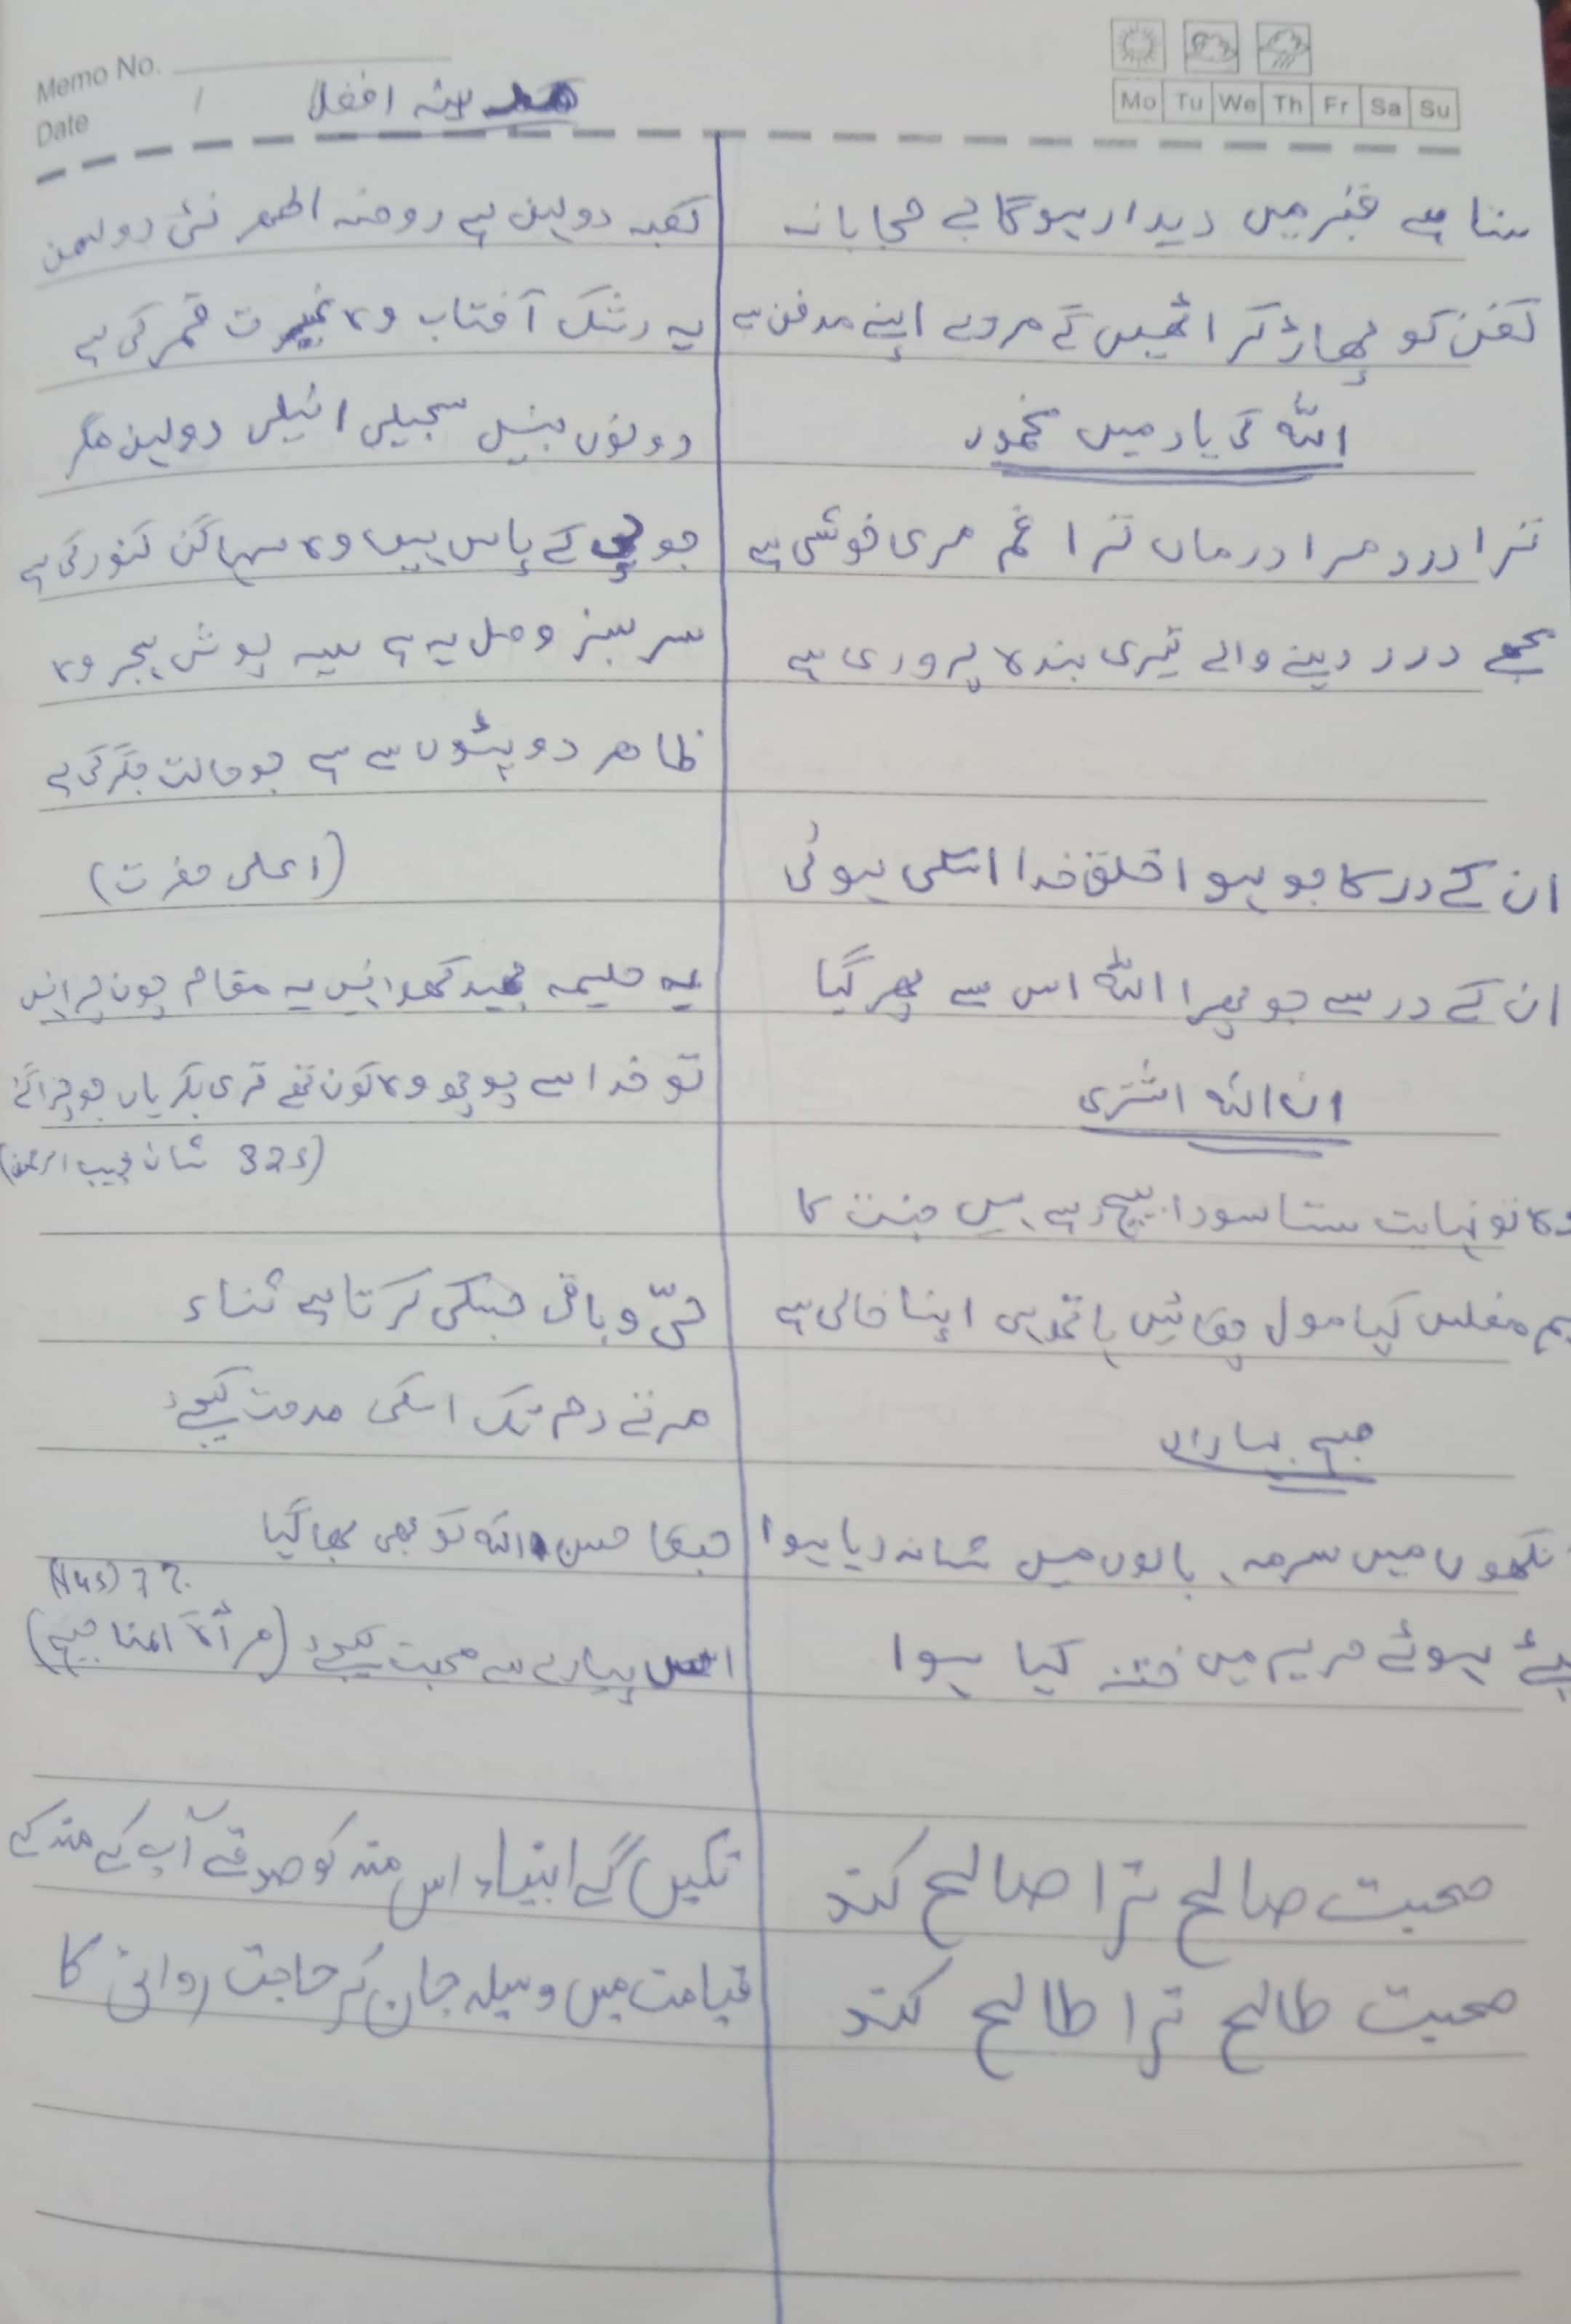 Memo No.
Date
مدینہ افضل
Mo Tu We Th Fr Sa Su
سنا ہے قبر میں دیدار ہوگا بے حجابانہ
کفن کو پھاڑ کر اٹھیں گے مردے اپنے مدفن سے
اللہ کی یاد میں مخمور
ترا درد مرا درماں ترا غم مری خوشی ہے
مجھے درد دینے والے تیری بندہ پروری ہے
ان کے در کا جو ہوا خلق خدا اسکی ہوئی
ان کے در سے جو پھرا اللہ اس سے پھر گیا
ان اللہ اشتری
وہ تو نہایت سستا سودا بیچ رہے ہیں جنت کا
ہم مفلس کیا مول چکائیں ہاتھ ہی اپنا خالی ہے
صبح بہاراں
نکھوں میں سرمہ، بالوں میں شانہ دیا ہوا
لپٹے ہوئے حریر میں ختنہ کیا ہوا
صحبت صالح ترا صالح کند
صحبت طالح ترا طالح کند
کعبہ دولہن ہے روضہ اطہر نئی دولہن
یہ رشک آفتاب وہ غیرت قمر کی ہے
دونوں بنیں سجیلی انیلی دولہن مگر
جو پی کے پاس ہیں وہ سہاگن کنور کی ہے
سر سبز وصل یہ ہے سیہ پوش ہجر وہ
ظاہر دوپٹوں سے ہے جو حالت جگر کی ہے
(اعلی حضرت)
یہ حلیمہ بھید کھلا نہیں یہ مقام چون چرا نہیں
تو خدا سے پوچھو وہ کون تھے تری بکریاں جو چرا گئے
(325 شان حبیب الرحمن)
حیّ و باقی جسکی کرتا ہے ثناء
مرتے دم تک اسکی مدحت کیجئے
جسکا حسن اللہ کو بھی بھا گیا
اس پیارے سے محبت کیجئے (مرأۃ المناجیح)
تکیں گے انبیاء اس منہ کو صدقے آپ کے منہ کے
قیامت میں وسیلہ جان کر حاجت روائی کا